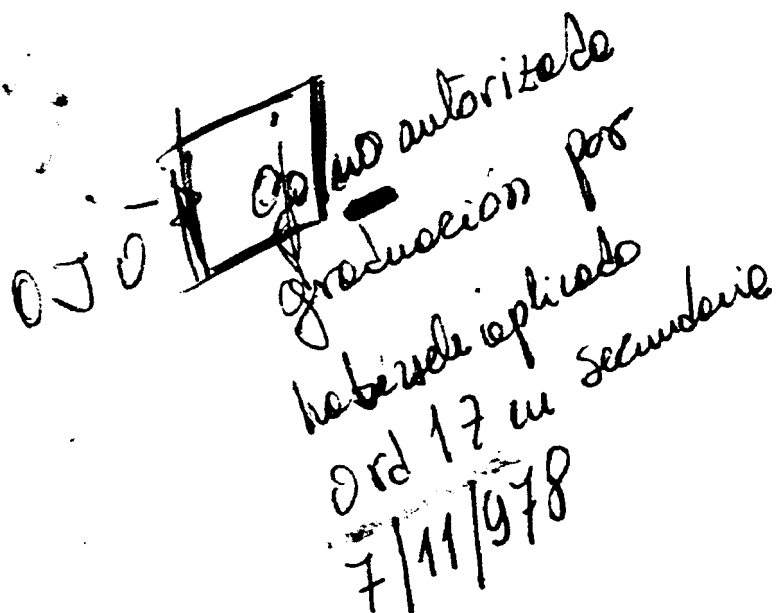 OJO - Ojo no autorizada
graduación por
habérsele aplicado
Ord 17 en secundaria
7/11/978